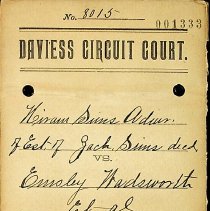 No. 8015
001333
DAVIESS CIRCUIT COURT.
Hiram Sims Admr.
of Est of Zach. Sims decd
VS.
Emsley Wadsworth
Et. al